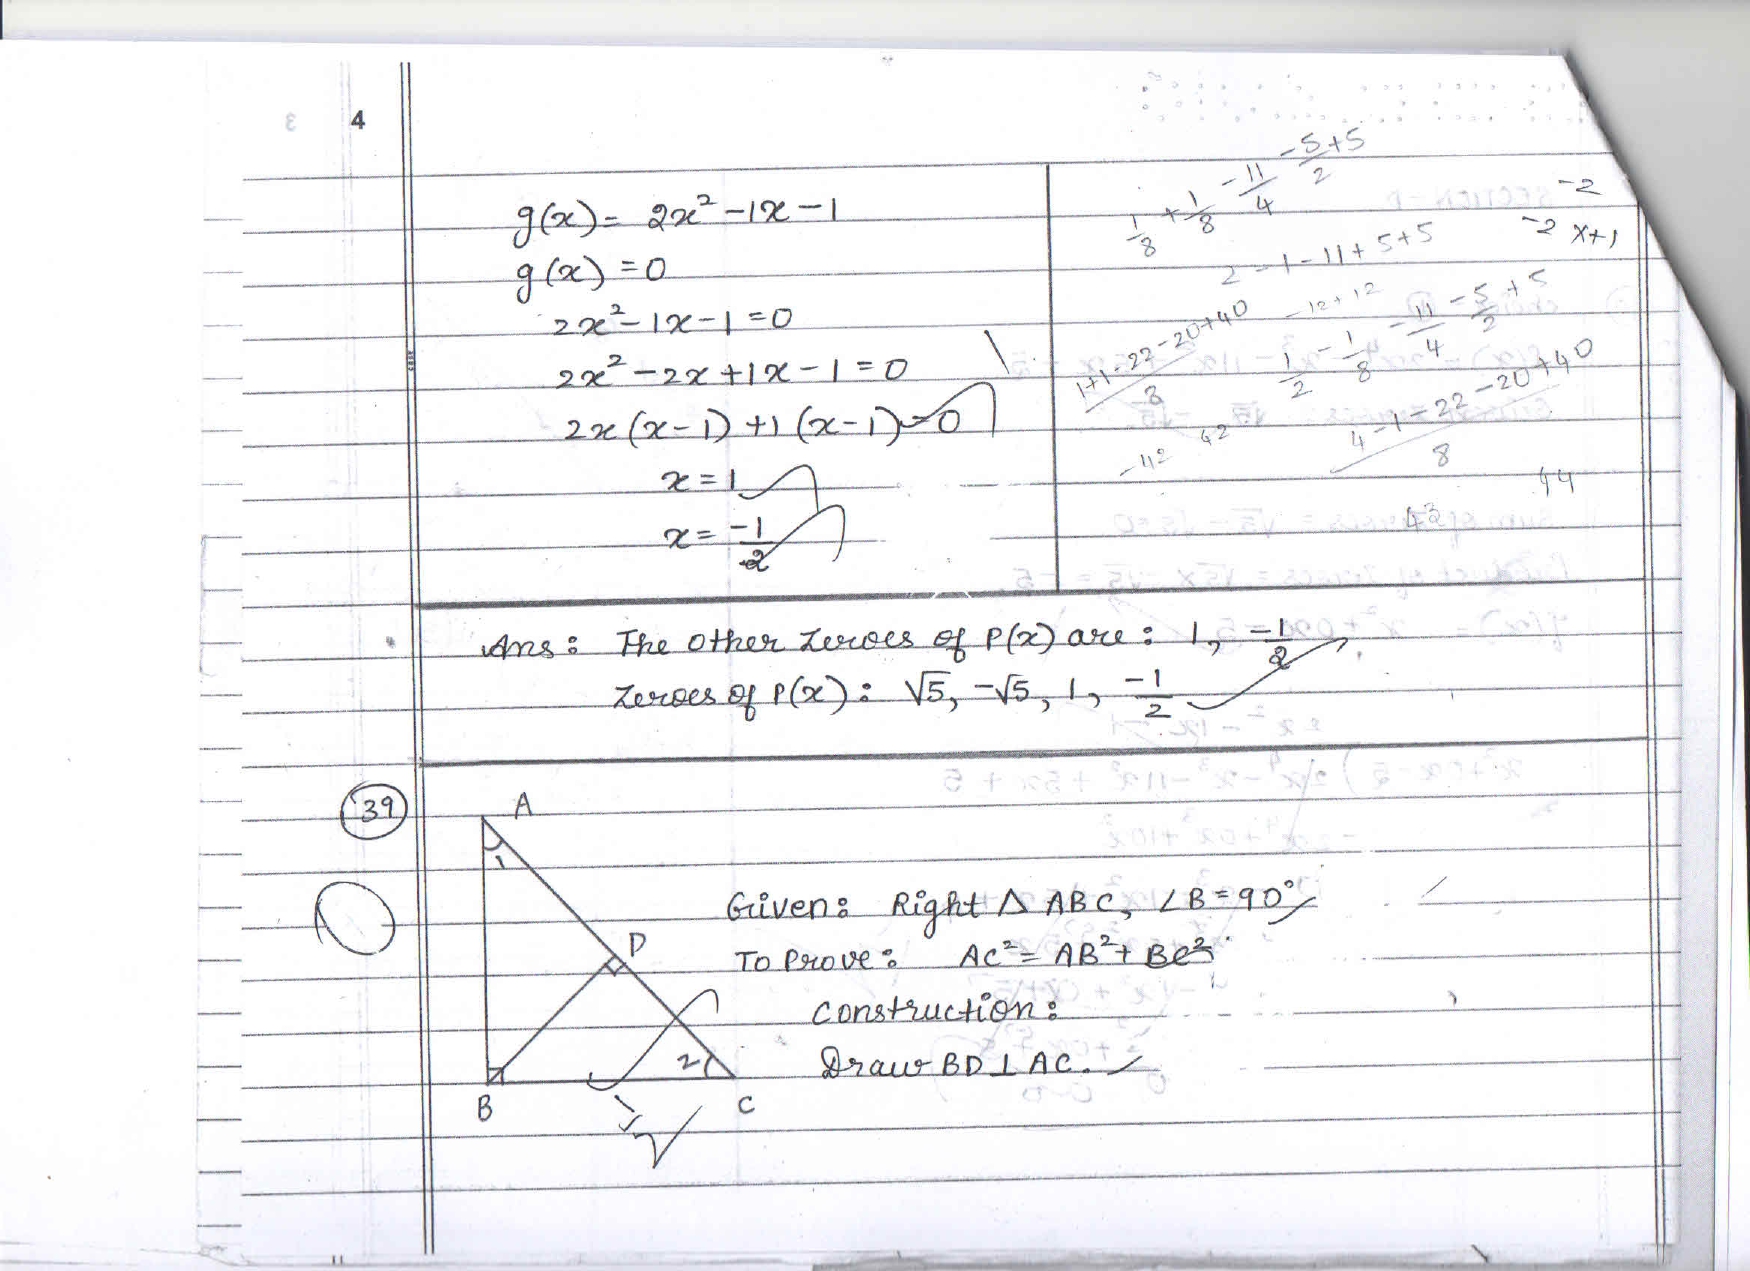 4
g(x) = 2x² - 1x - 1
g(x) = 0
2x² - 1x - 1 = 0
2x² - 2x + 1x - 1 = 0
2x(x - 1) + 1(x - 1) = 0
x = 1
x = -1/2
1/8 + 1/8 - 11/4 - 5/2 + 5
-2
-2 x+1
2 - 1 - 11 + 5 + 5
-12 + 12
1+1-22-20+40 / 8
1/2 - 1/8 - 11/4 - 5/2 + 5
4-1-22-20+40 / 8
-42 42
44
43
Ans: The other zeroes of P(x) are: 1, -1/2
zeroes of P(x): √5, -√5, 1, -1/2
39
A
1
D
2
B
C
Given: Right △ ABC, ∠B = 90°
To Prove: AC² = AB² + BC²
Construction:
Draw BD ⊥ AC.